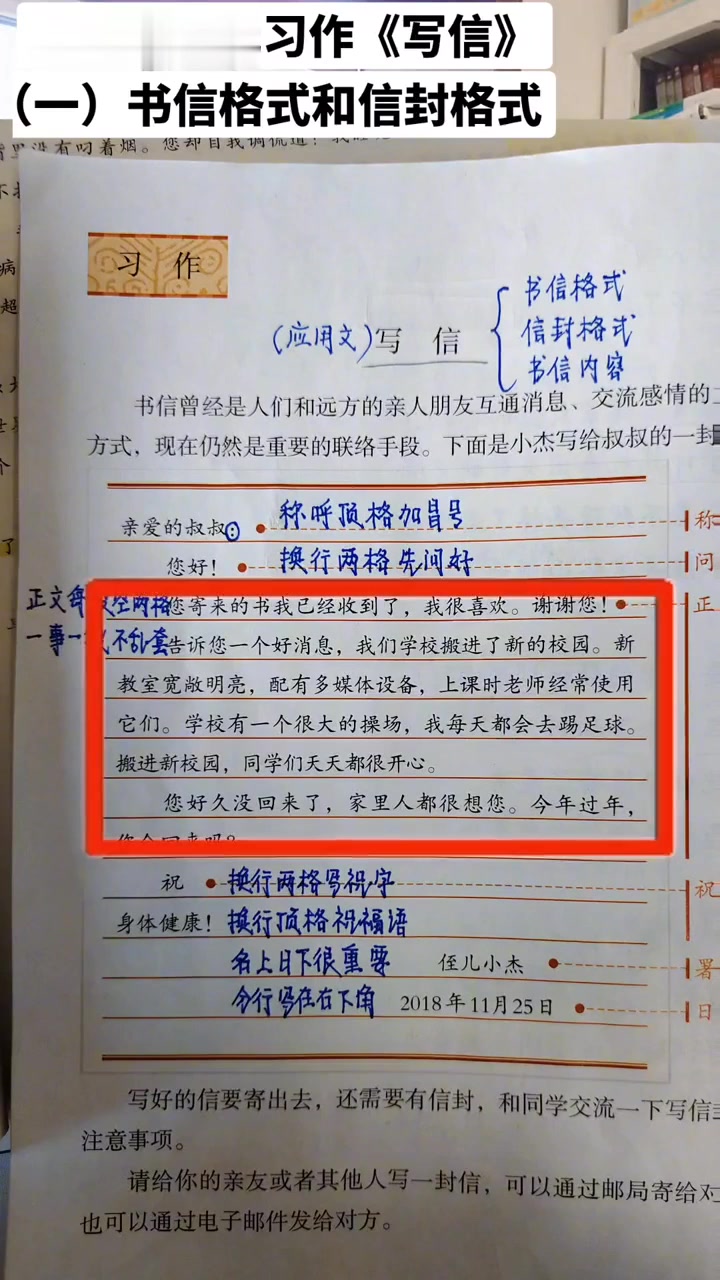 习作《写信》
（一）书信格式和信封格式
没有叼着烟。您却自我调侃道：
病
超
个
了
习 作
（应用文）写 信
书信格式
信封格式
书信内容
书信曾经是人们和远方的亲人朋友互通消息、交流感情的
方式，现在仍然是重要的联络手段。下面是小杰写给叔叔的一封
亲爱的叔叔： 称呼顶格加冒号 称
您好！ 换行两格先问好 问
正文每段空两格 您寄来的书我已经收到了，我很喜欢。谢谢您！ 正
一事一段不乱套 告诉您一个好消息，我们学校搬进了新的校园。新
教室宽敞明亮，配有多媒体设备，上课时老师经常使用
它们。学校有一个很大的操场，我每天都会去踢足球。
搬进新校园，同学们天天都很开心。
您好久没回来了，家里人都很想您。今年过年，
您会回来吗？
祝 换行两格写祝字 祝
身体健康！ 换行顶格祝福语
名上日下很重要 侄儿小杰 署
分行写在右下角 2018年11月25日 日
写好的信要寄出去，还需要有信封，和同学交流一下写信封
注意事项。
请给你的亲友或者其他人写一封信，可以通过邮局寄给对
也可以通过电子邮件发给对方。